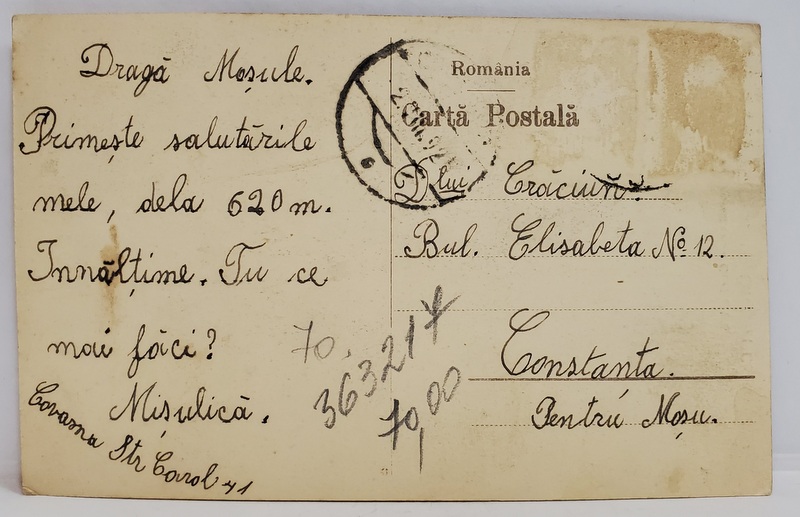 Dragă Moșule.
Primește salutările
mele, dela 620 m.
Innălțime. Tu ce
mai făci?
Mișulică.
Covasna Str Carol 41
70.
363217
70,00
România
Cartă Postală
Dlui Crăciun.
Bul. Elisabeta No 12.
Constanta.
Pentru Moșu.